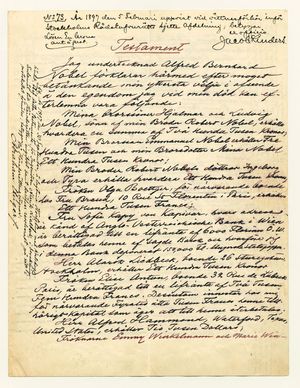 No 73. År 1897 den 5 Februari uppvist vid vittnesförhör inför
Stockholms Rådstufvurätts sjette Afdelning; betygar
ex officio
Testament
Jag undertecknad Alfred Bernhard
Nobel förklarar härmed efter moget
betänkande min yttersta vilja i afseende
å den egendom jag vid min död kan ef-
terlemna vara följande:
Mina Brorsöner Hjalmar och Ludvig
Nobel, söner af min Broder Robert Nobel, erhålla
hvardera en summa af Två Hundra Tusen Kronor;
Min Brorson Emmanuel Nobel erhåller Tre
Hundra Tusen och min Brorsdotter Mina Nobel
Ett Hundra Tusen Kronor;
Min Broder Robert Nobels döttrar Ingeborg
och Tyra erhålla hvardera Ett Hundra Tusen Kronor;
Fröken Olga Boettger, för närvarande boende
hos Fru Brand, 10 Rue St Florentin i Paris, erhåller
Ett Hundra Tusen Francs;
Fru Sofie Kapy von Kapivar, hvars adress
är känd af Anglo-Oesterreichische Bank i Wien
är berättigad till en lifränta af 6000 Florins Ö.W.
som betalas henne af sagde Bank och hvarför jag
i denna Bank deponerat 150,000 Fl. i Ungerska Statspapper;
Herr Alarik Liedbeck, boende 26 Sturegatan,
Stockholm, erhåller Ett Hundra Tusen Kronor;
Fröken Elise Antun, boende 32 Rue de Lubeck,
Paris, är berättigad till en lifränta af Två Tusen
Fem Hundra Francs. Desutom innestår hos mig
för närvarande Fyratio Åtta Tusen Francs henne till-
hörigt kapital som äger att till henne återbetalas;
Herr Alfred Hammond, Waterford, Texas,
United States, erhåller Tio Tusen Dollars;
Fröknarna Emmy Winkelmann och Marie Win-